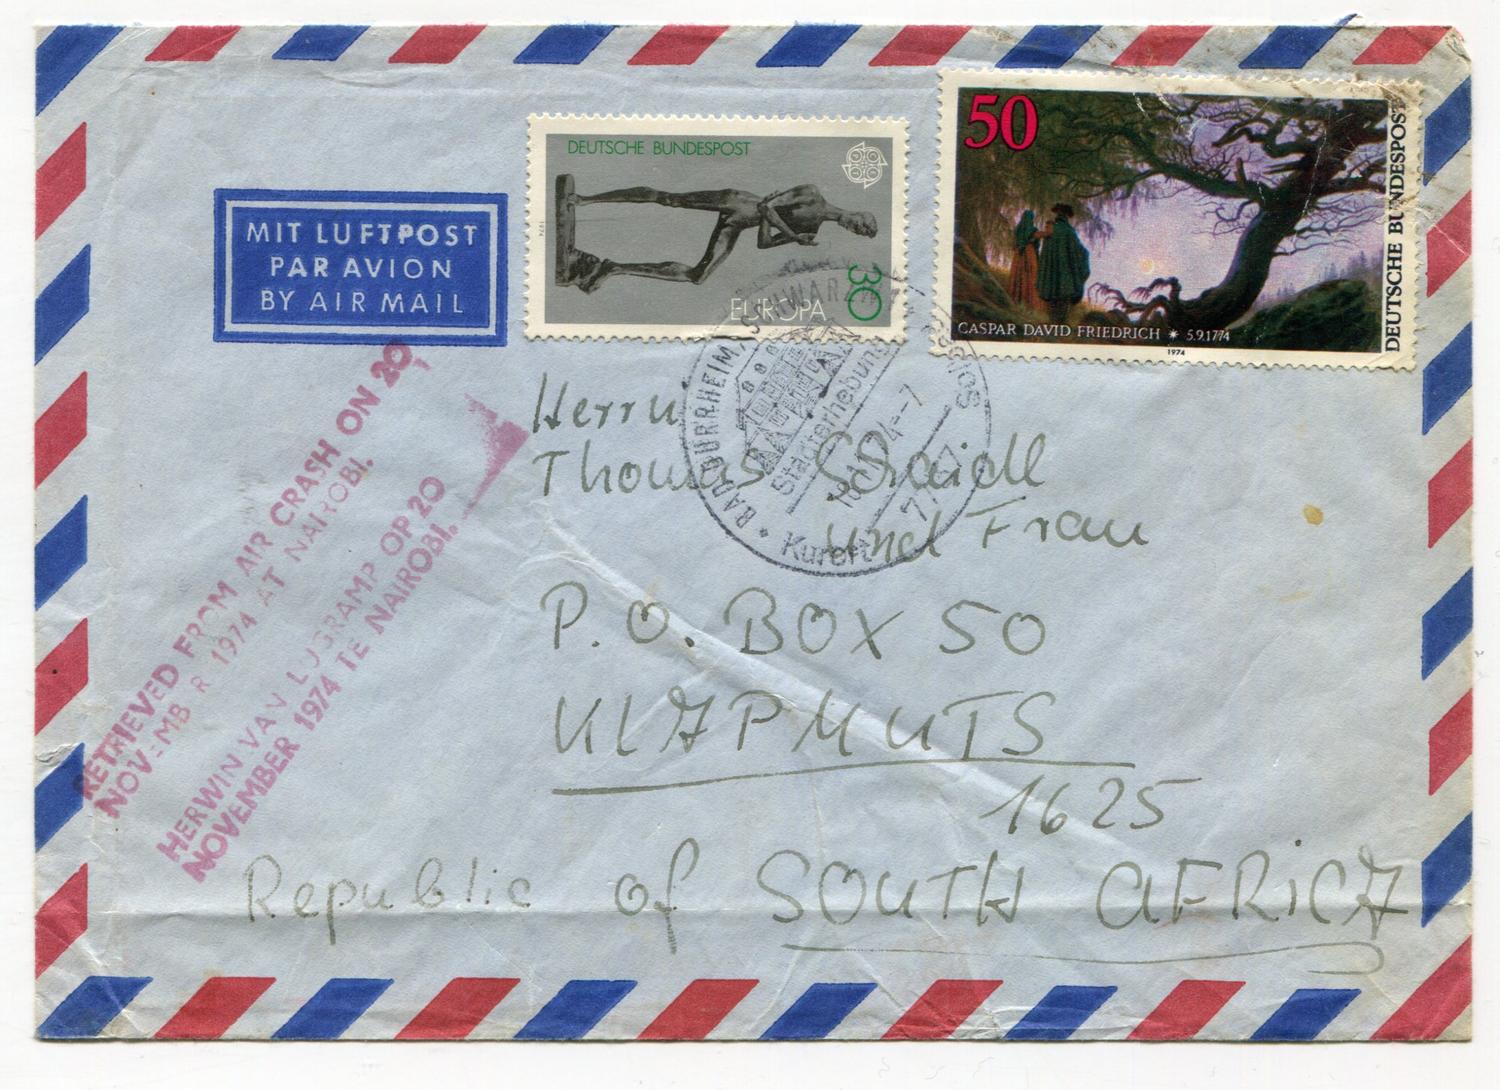 MIT LUFTPOST
PAR AVION
BY AIR MAIL
DEUTSCHE BUNDESPOST
1974
EUROPA
30
50
CASPAR DAVID FRIEDRICH * 5.9.1774
1974
DEUTSCHE BUNDESPOST
BAD DÜRRHEIM/SCHWARZW.
Stadterhebung
18.11.74--7
Kurort
RETRIEVED FROM AIR CRASH ON 20
NOVEMB R 1974 AT NAIROBI.
HERWIN VAN LUGRAMP OP 20
NOVEMBER 1974 TE NAIROBI.
Herrn
Thomas
und Frau
P.O. BOX 50
KLAPMUTS
1625
Republic of SOUTH AFRICA